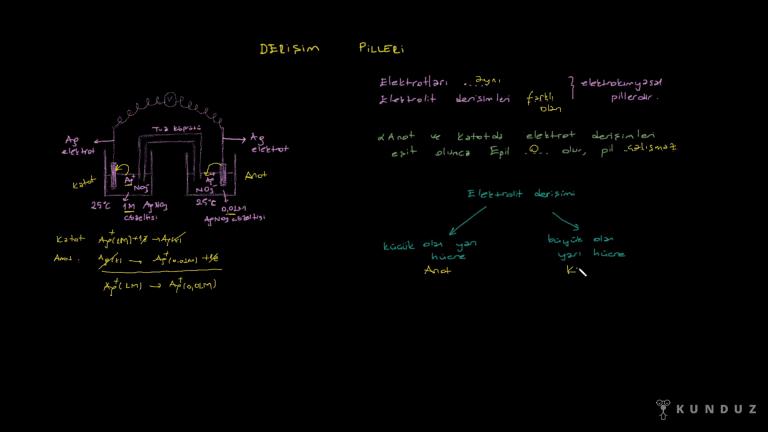 DERİŞİM PİLLERİ
Elektrotları ..aynı..
Elektrolit derişimleri farklı olan
elektrokimyasal
pillerdir.
Anot ve katotda elektrot derişimleri
eşit olunca Epil ..0.. olur, pil çalışmaz
V
Tuz köprüsü
Ag
elektrot
Ag
elektrot
Katot
Anot
Ag+
NO3-
Ag+
NO3-
25°C
1M AgNO3
çözeltisi
25°C
0,01M
AgNO3 çözeltisi
Katot Ag+(1M)+1e → Ag(k)
Anot: Ag(k) → Ag+(0,01M)+1e
Ag+(1M) → Ag+(0,01M)
Elektrolit derişimi
küçük olan yarı
hücre
Anot
büyük olan
yarı hücre
K
KUNDUZ